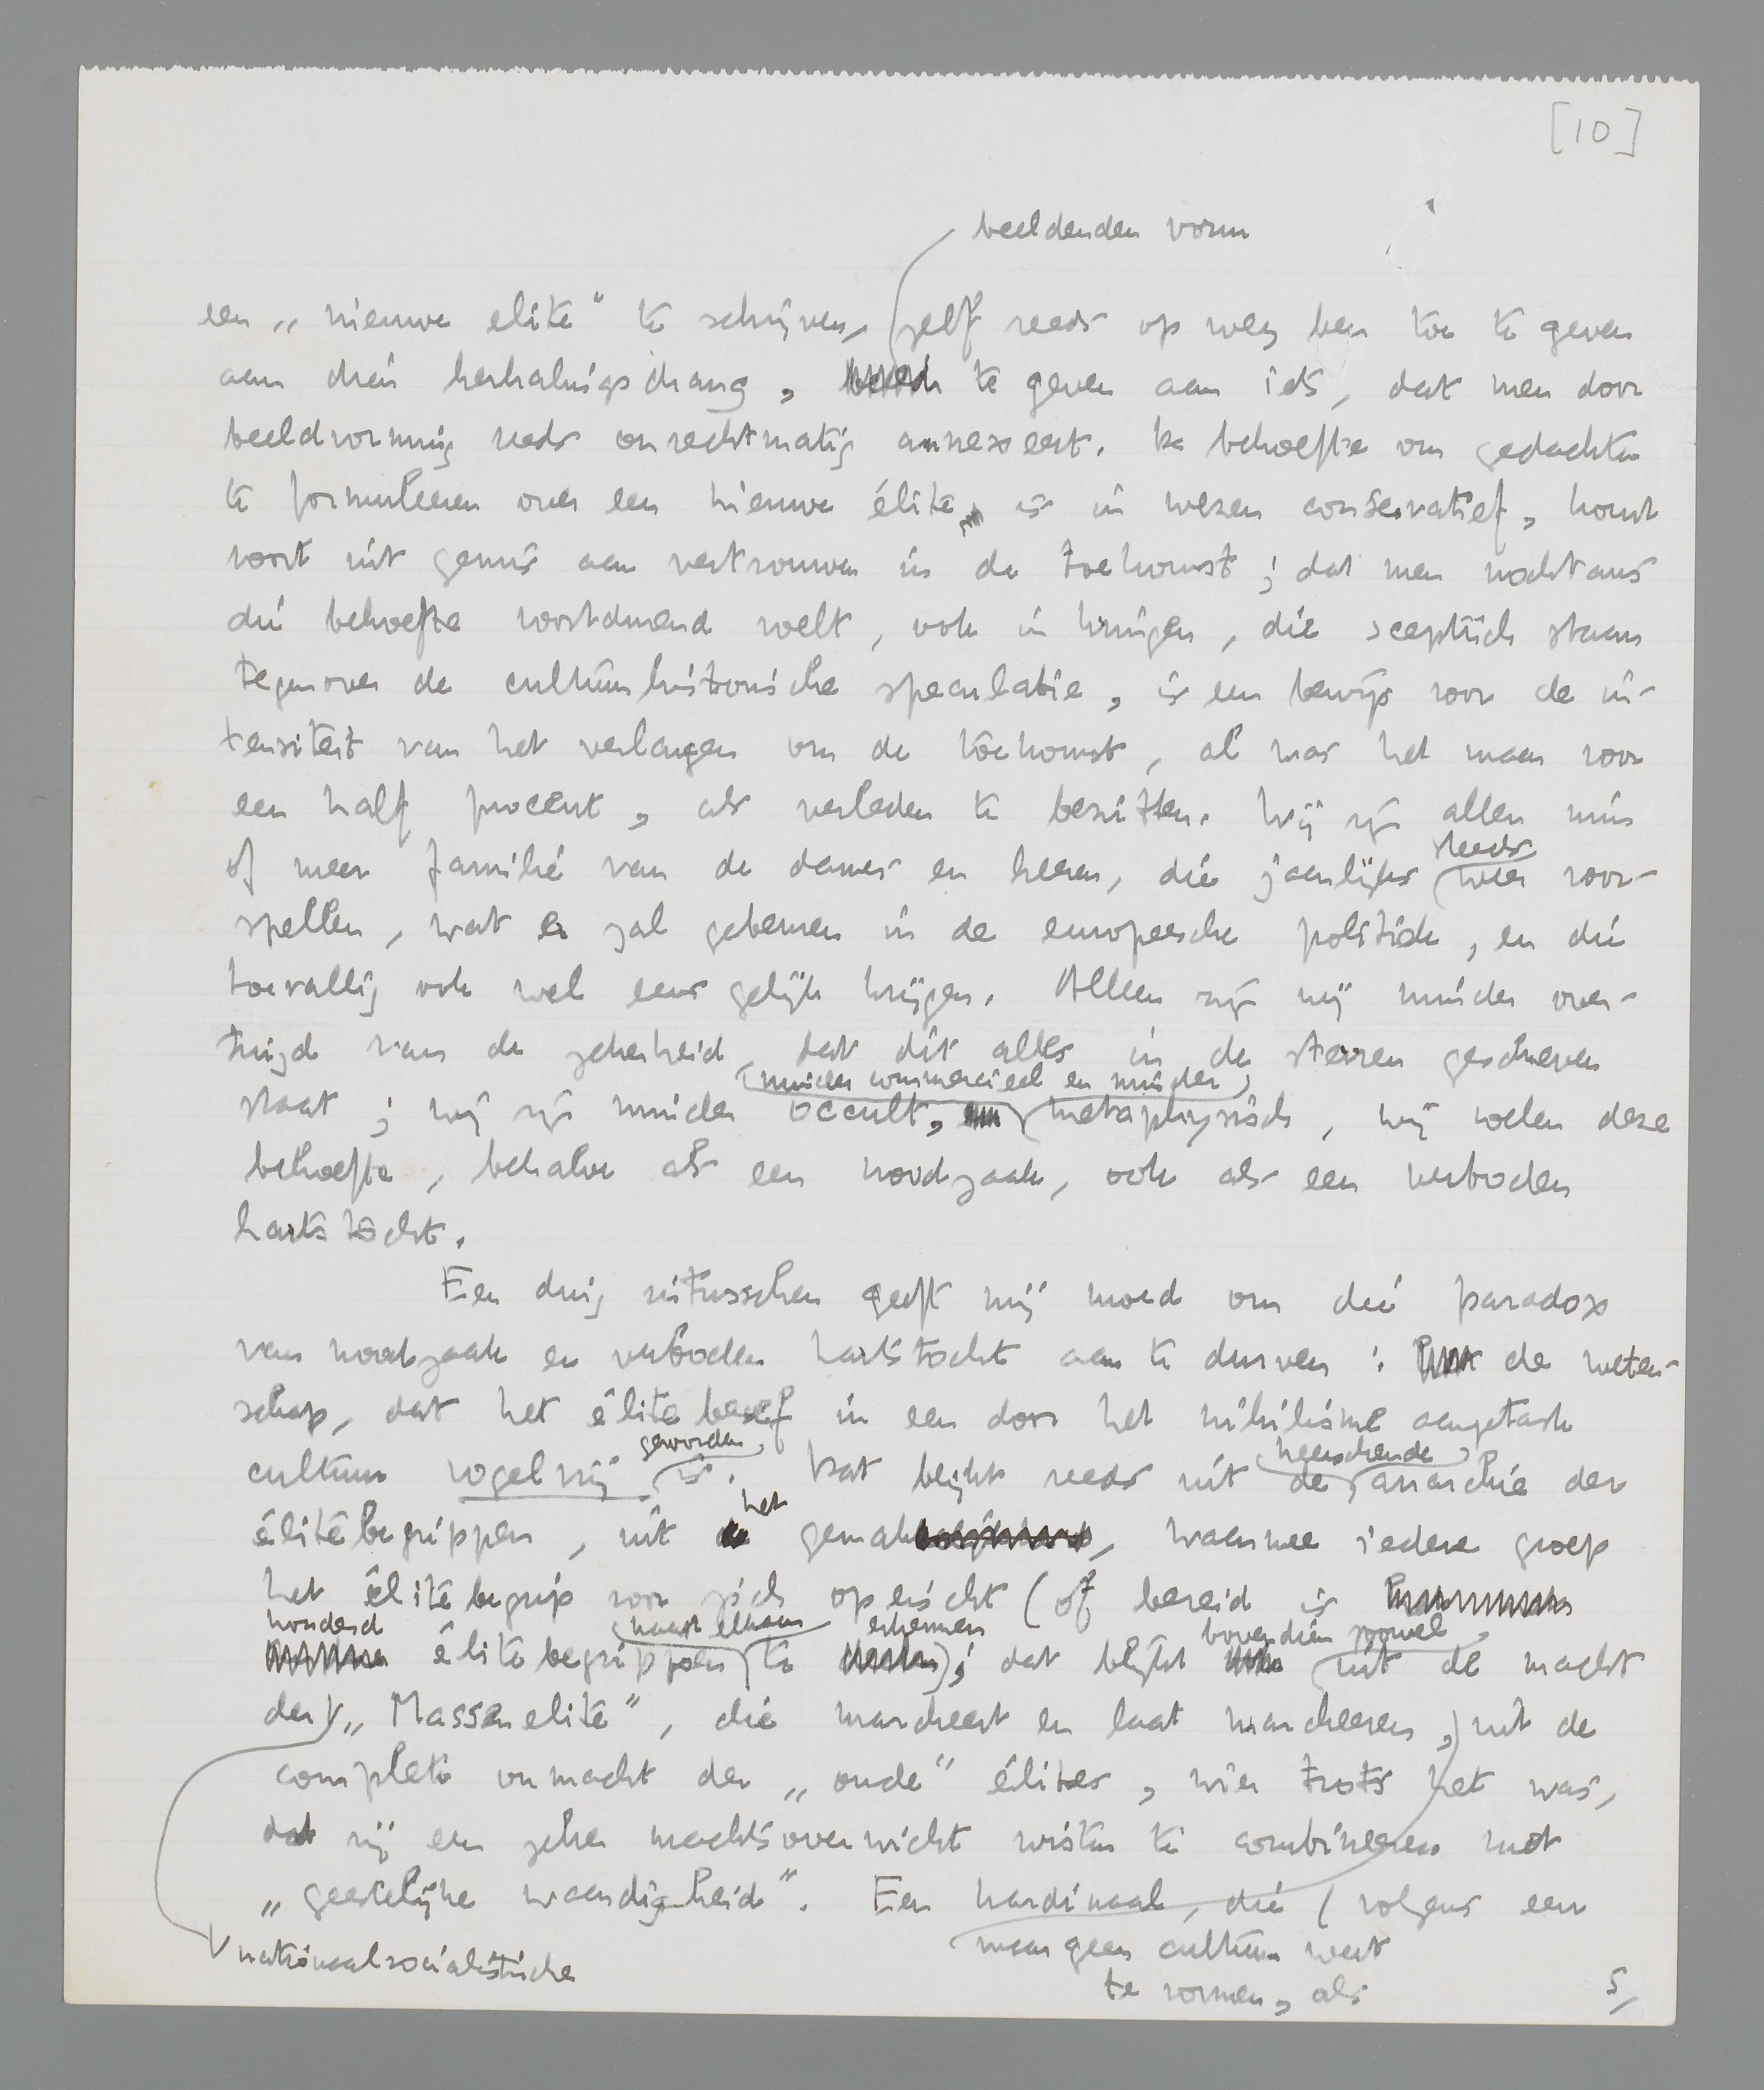 [10]
beeldenden vorm
een „nieuwe elite" te schrijven, zelf reeds op weg ben toe te geven
aan dien herhalingsdrang, te geven aan iets, dat men door
beeldvorming reeds onrechtmatig annexeert. De behoefte om gedachten
te formuleeren over een nieuwe élite, is in wezen conservatief, komt
voort uit gemis aan vertrouwen in de toekomst; dat men nochtans
die behoefte voortdurend voelt, ook in kringen, die sceptisch staan
tegenover de cultuurhistorische speculatie, is een bewijs voor de in-
tensiteit van het verlangen om de toekomst, al was het maar voor
een half procent, als verleden te bezitten. Wij zijn allen min
steeds
of meer familie van de dames en heeren, die jaarlijks weer voor-
spellen, wat er zal gebeuren in de europeesche politiek, en die
toevallig ook wel eens gelijk krijgen. Alleen zijn wij minder over-
tuigd van de zekerheid, dat dit alles in de sterren geschreven
minder commercieel en minder
staat; wij zijn minder occult, metaphysisch, wij voelen deze
behoefte, behalve als een noodzaak, ook als een verboden
hartstocht.
Een ding intusschen geeft mij moed om die paradox
van noodzaak en verboden hartstocht aan te durven: de weten-
schap, dat het élitebesef in een door het nihilisme aangetaste
geworden
cultuur vogelvrij is. Dat blijkt reeds uit de anarchie der
heerschende
élitebegrippen, uit gemak, waarmee iedere groep
het
het élitebegrip voor zich opeischt (of bereid is
honderd naast elkaar erkennen bovendien zoowel
élitebegrippen te ); dat blijkt uit de macht
der „Massenelite", die marcheert en laat marcheeren, uit de
complete onmacht der „oude" élites, wier trots het was,
dat zij een zeker machtsoverwicht wisten te combineeren met
„geestelijke waardigheid". Een kardinaal, die (volgens een
nationaalsocialistische
maar geen cultuur weet
te vormen, als
5/